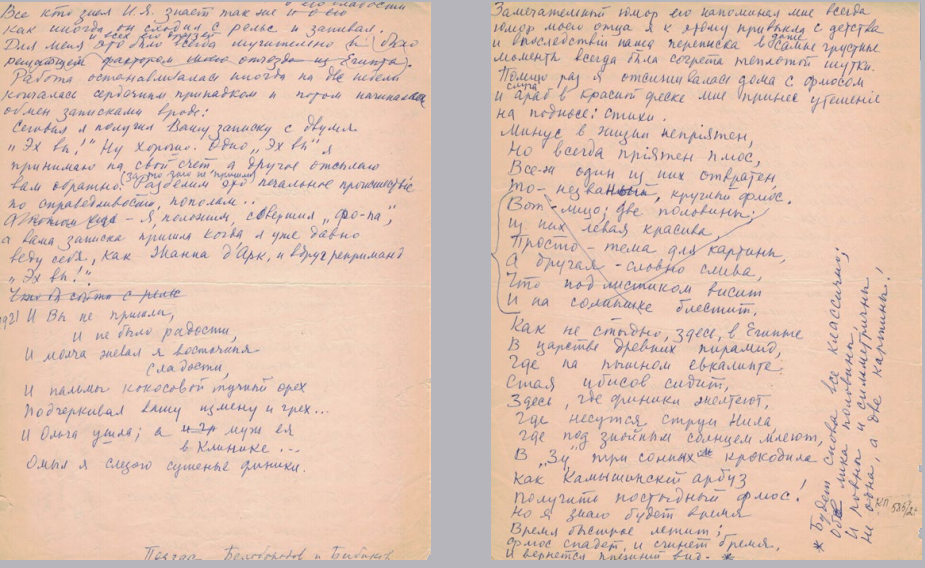 Все кто знал И.Я. знает так же и о его слабости
как иногда он сходил с рельс и запивал.
Для меня это было всегда мучительно и было
решающей фактором отъезда из Египта.
Работа останавливалась иногда на две недели
кончалась сердечным припадком и потом начинался
обмен записками вроде:
Сегодня я получил Вашу записку с двумя
"Эх вы!" Ну хорошо. Одно "Эх вы" я
принимаю на свой счет а другое отсылаю
вам обратно. Разделим это печальное происшествие
по справедливости, пополам..
– Я, положим, совершил "фо-па",
а ваша записка пришла когда я уже давно
веду себя, как Жанна д'Арк, и вдруг реприманд
"Эх вы!".
1921 И Вы не пришли,
И не было радости,
И молча жевал я восточныя
сладости,
И пальмы кокосовой тучной орех
Подчеркивал вашу измену и грех...
И Ольга ушла; а муж ея
в Клинике...
Омыл я слезою сушеные финики.
Поэзия Белобородов и Бибиков
Замечательный юмор его напоминал мне всегда
юмор моего отца я к этому привыкла с детства
и впоследствии наша переписка в даже самые грустные
моменты всегда была согрета теплотой шутки.
Помню раз я отсиживалась дома с флюсом
и слуга араб в красной феске мне принес утешеніе
на подносе: стихи.
Минус в жизни непріятен,
Но всегда пріятен плюс,
Все-ж один из них отвратен
То- незваный, круглый флюс.
Вот – лицо; две половины:
Из них левая красива,
Просто – тема для картины,
А другая – словно слива,
Что под листиком висит
И на солнышке блестит,
Как не стыдно, здесь, в Египте
В царстве древних пирамид,
Где на пышном эвкалипте
Стая ибисов сидит,
Здесь, где финики желтеют,
Где несутся струи Нила
Где под знойным солнцем млеют,
В "Зу" три сонных крокодила
Как Камышинский арбуз
Получить постыдный флюс!
Но я знаю будет время
Время быстрое летит;
Флюс спадет, и сгинет бремя,
И вернется прежний вид. *
* Будет снова все классично;
Обе лика половины,
И ровны и симметричны
Не одна, а две картины!
КП